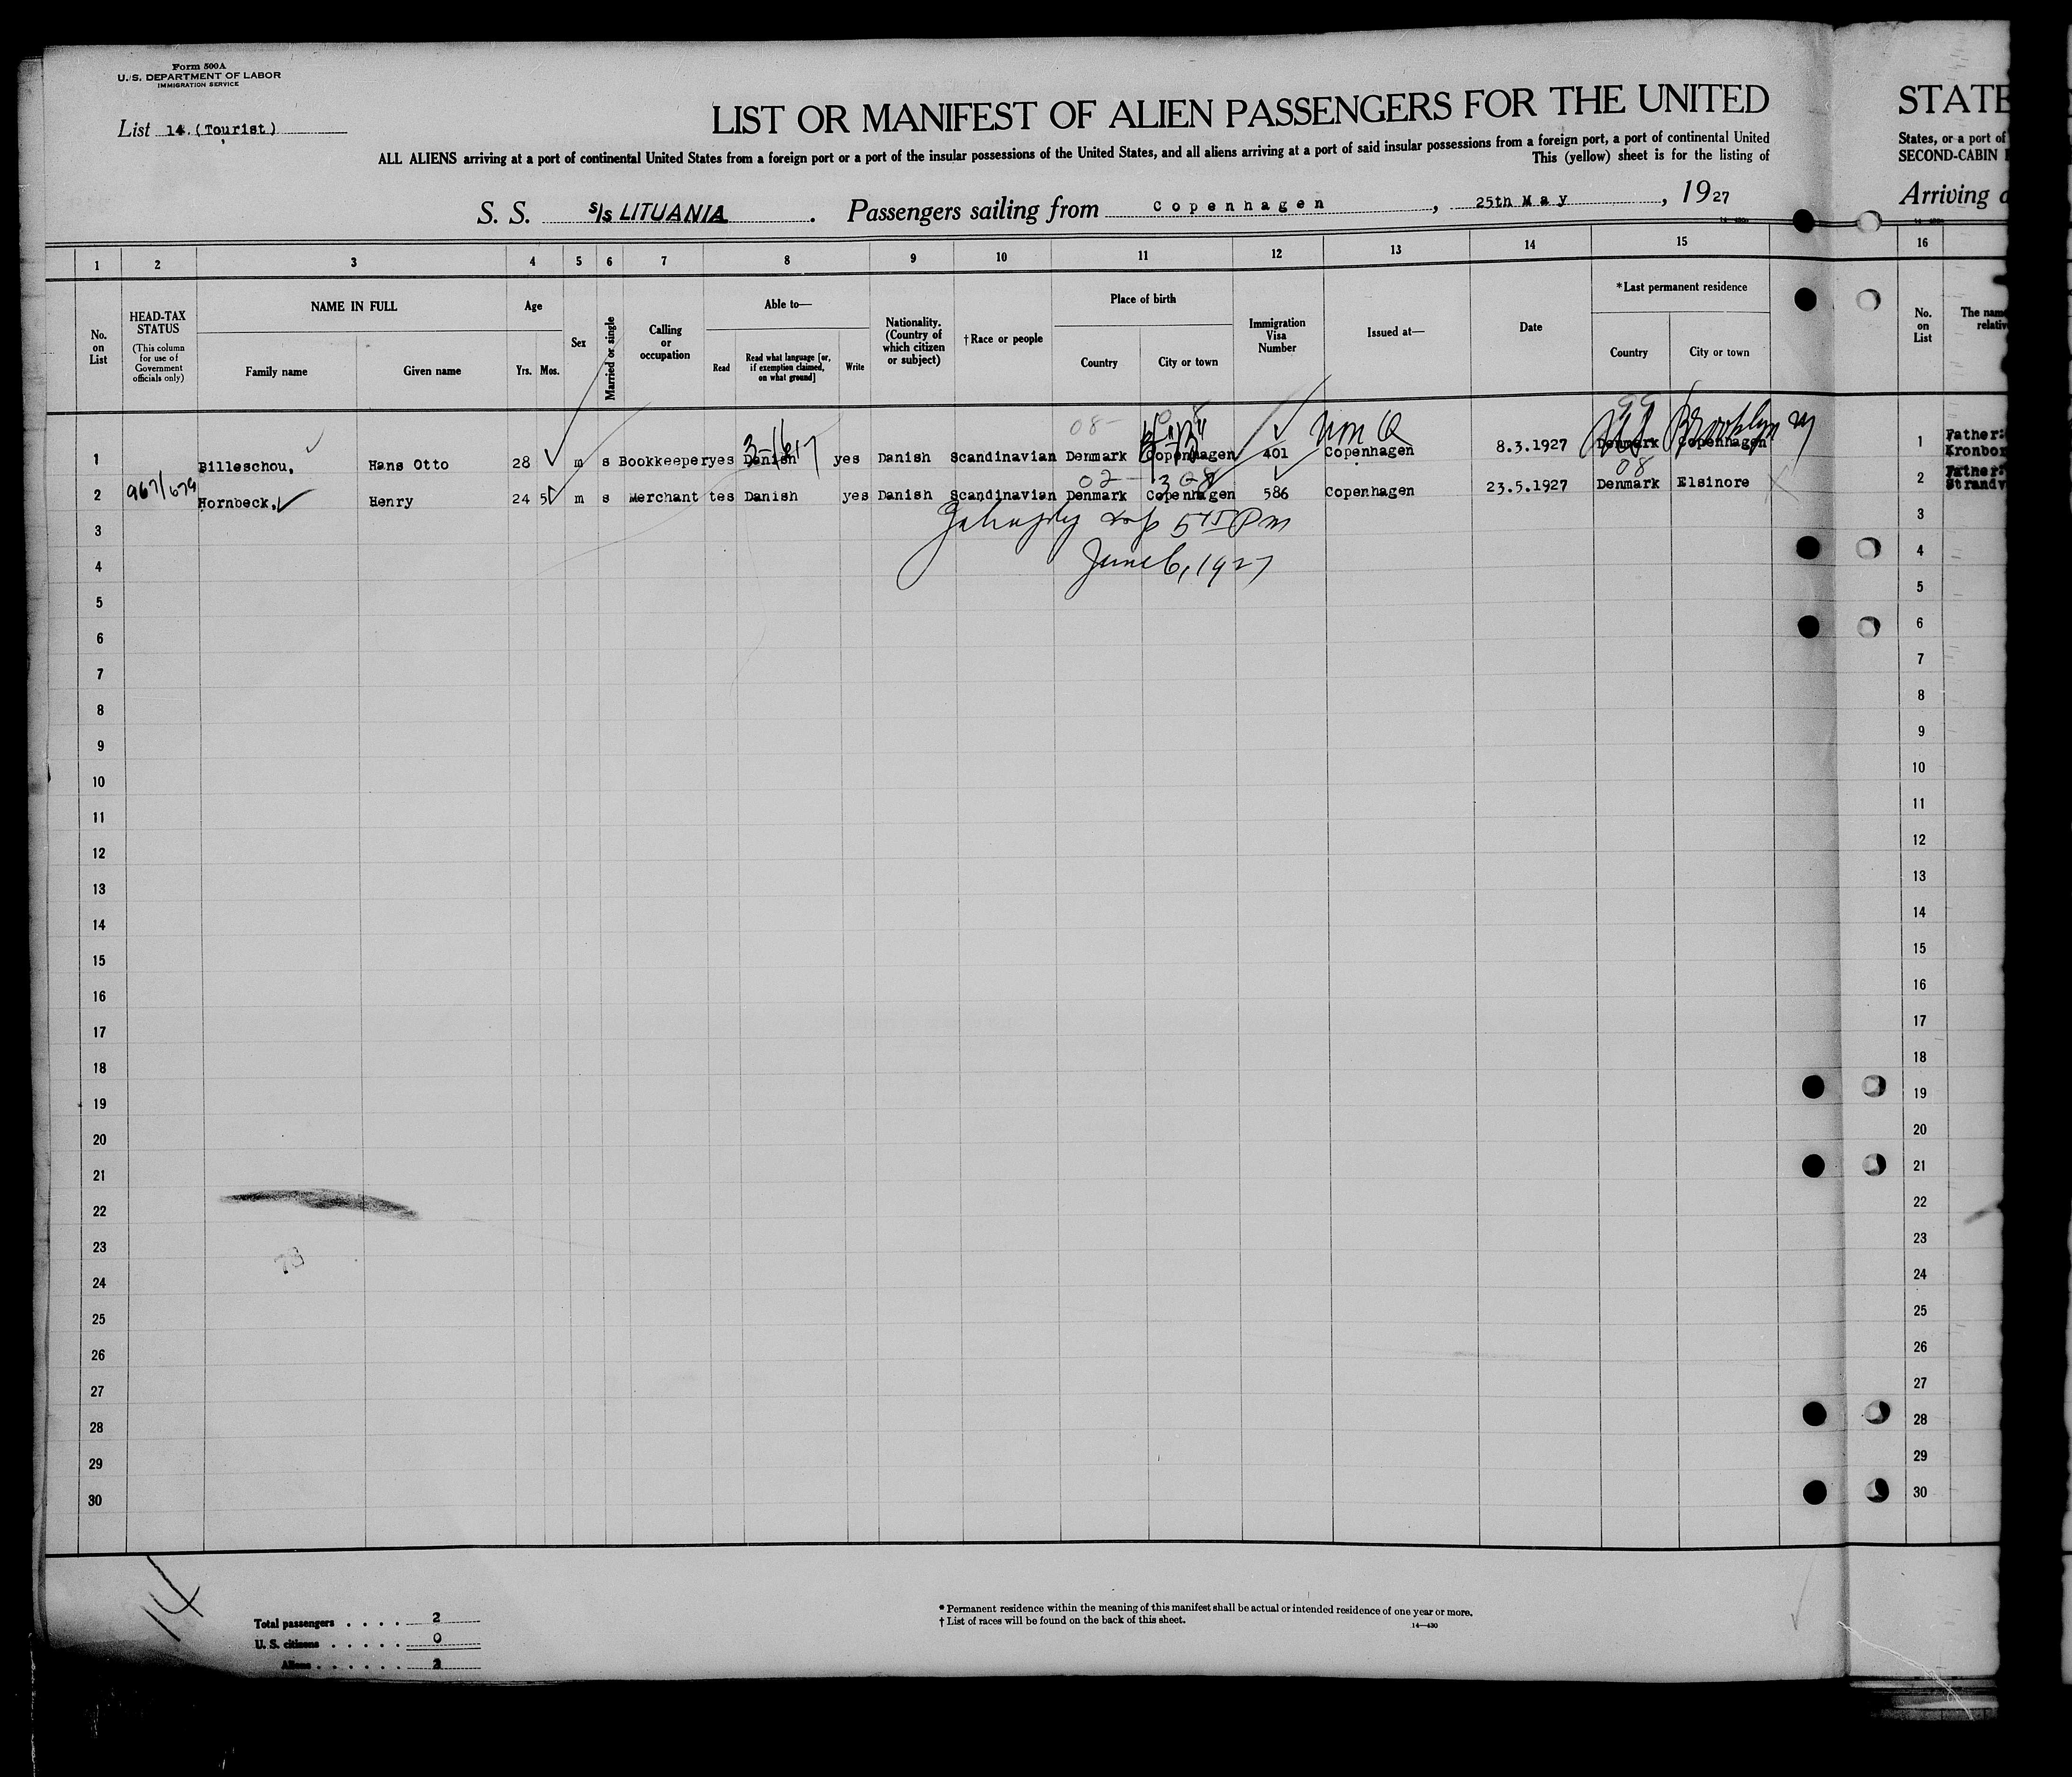 Form 500A
U. S. DEPARTMENT OF LABOR
IMMIGRATION SERVICE
List 14. (Tourist)
LIST OR MANIFEST OF ALIEN PASSENGERS FOR THE UNITED
ALL ALIENS arriving at a port of continental United States from a foreign port or a port of the insular possessions of the United States, and all aliens arriving at a port of said insular possessions from a foreign port, a port of continental United
This (yellow) sheet is for the listing of
S. S. S/S LITUANIA . Passengers sailing from Copenhagen , 25th May , 1927
STATE
States, or a port of
SECOND-CABIN
Arriving
1 2 3 4 5 6 7 8 9 10 11 12 13 14 15 16
No. on List
HEAD-TAX STATUS
(This column for use of Government officials only)
NAME IN FULL
Family name
Given name
Age
Yrs. Mos.
Sex
Married or single
Calling or occupation
Able to—
Read
Read what language [or, if exemption claimed, on what ground]
Write
Nationality. (Country of which citizen or subject)
†Race or people
Place of birth
Country
City or town
Immigration Visa Number
Issued at—
Date
*Last permanent residence
Country
City or town
No. on List
The name
relativ
08- Non Q 99
1 Billeschou, Hans Otto 28 m s Bookkeeper yes Danish 3-1617 yes Danish Scandinavian Denmark Copenhagen 401 Copenhagen 8.3.1927 Denmark Copenhagen Brooklyn NY 1 Father: Kronbor
02 08
2 967/679 Hornbeck, Henry 24 5 m s Merchant tes Danish yes Danish Scandinavian Denmark Copenhagen 586 Copenhagen 23.5.1927 Denmark Elsinore 2 Father: Strandv
3 3
June 6, 1927
4 4
5 5
6 6
7 7
8 8
9 9
10 10
11 11
12 12
13 13
14 14
15 15
16 16
17 17
18 18
19 19
20 20
21 21
22 22
23 23
24 24
25 25
26 26
27 27
28 28
29 29
30 30
14
Total passengers . . . . 2
U. S. citizens . . . . . 0
Aliens . . . . . . 2
* Permanent residence within the meaning of this manifest shall be actual or intended residence of one year or more.
† List of races will be found on the back of this sheet.
14—430